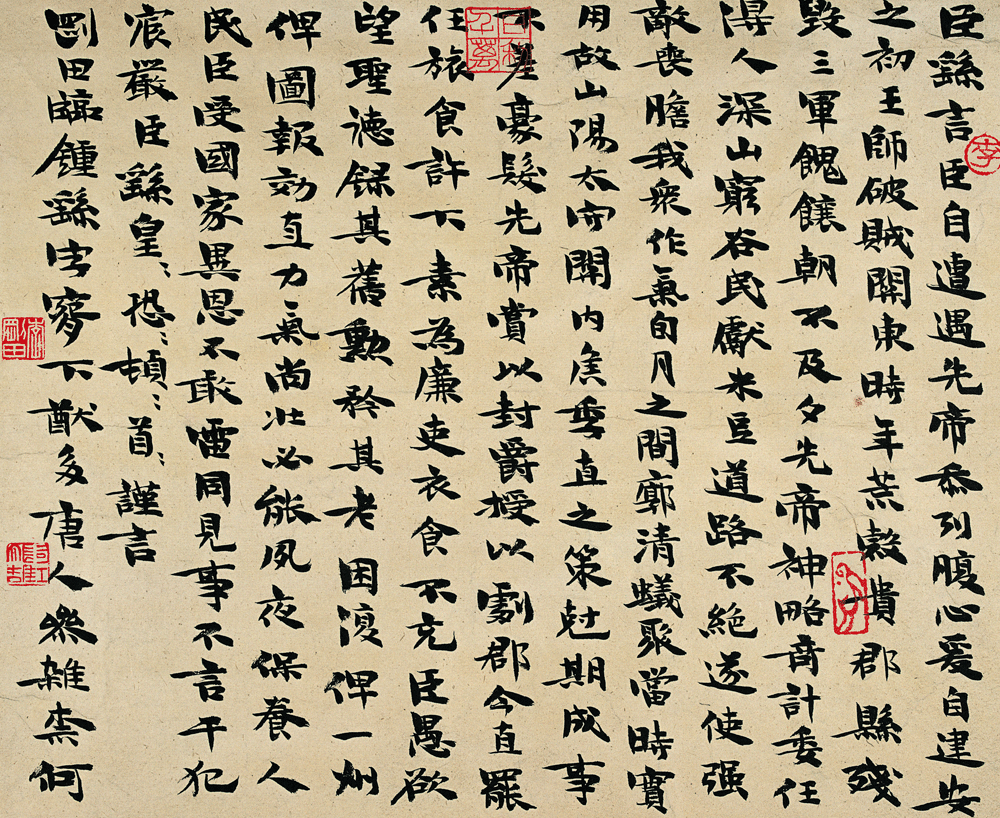 臣繇言臣自遭遇先帝忝列腹心爰自建安
之初王師破賊關東時年荒穀貴郡縣殘
毀三軍餽饟朝不及夕先帝神略奇計委任
得人深山窮谷民獻米豆道路不絕遂使強
敵喪膽我衆作氣旬月之間廓清蟻聚當時實
用故山陽太守關內侯季直之策尅期成事
不差豪髮先帝賞以封爵授以劇郡今直罷
任旅食許下素為廉吏衣食不充臣愚欲
望聖德錄其舊勳矜其老困復俾一州
俾圖報効直力氣尚壯必能夙夜保養人
民臣受國家異恩不敢雷同見事不言干犯
宸嚴臣繇皇〻恐〻頓〻首〻謹言
剛田臨鍾繇字下猷多唐人參雜柰何
李
李剛田